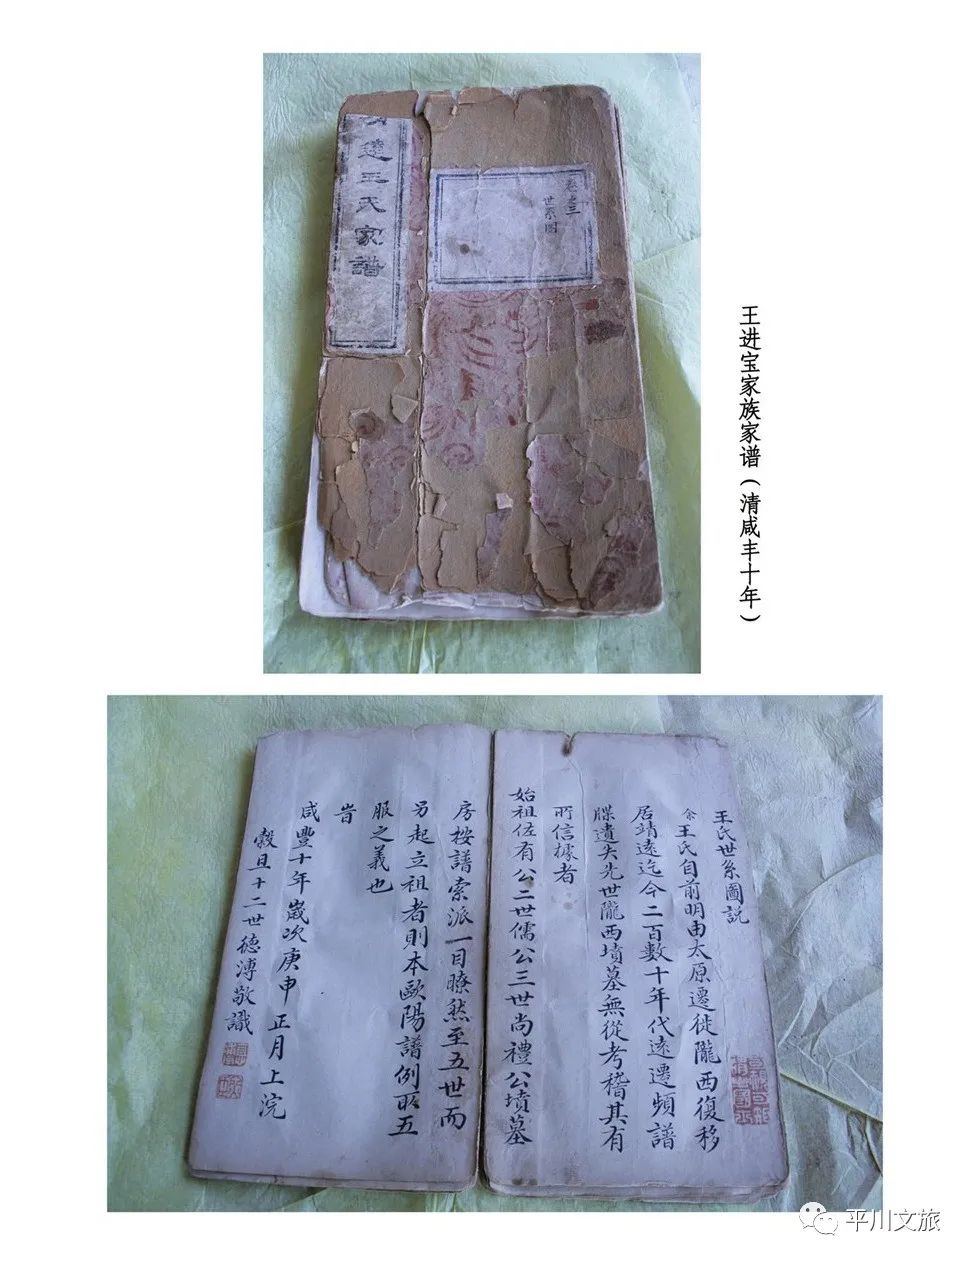 遠王氏家譜
卷之三
世系圖
王进宝家族家谱（清咸丰十年）
王氏世系圖説
余王氏自前明由太原遷徙隴西復移
居靖遠迄今二百數十年代遠遷頻譜
牒遺失先世隴西墳墓無從考稽其有
所信據者
始祖佐有公二世儒公三世尚禮公墳墓
房按譜索派一目瞭然至五世而
另起立祖者則本歐陽譜例取五
服之義也
旹
咸豐十年歲次庚申正月上浣
穀旦十二世德溥敬識
平川文旅